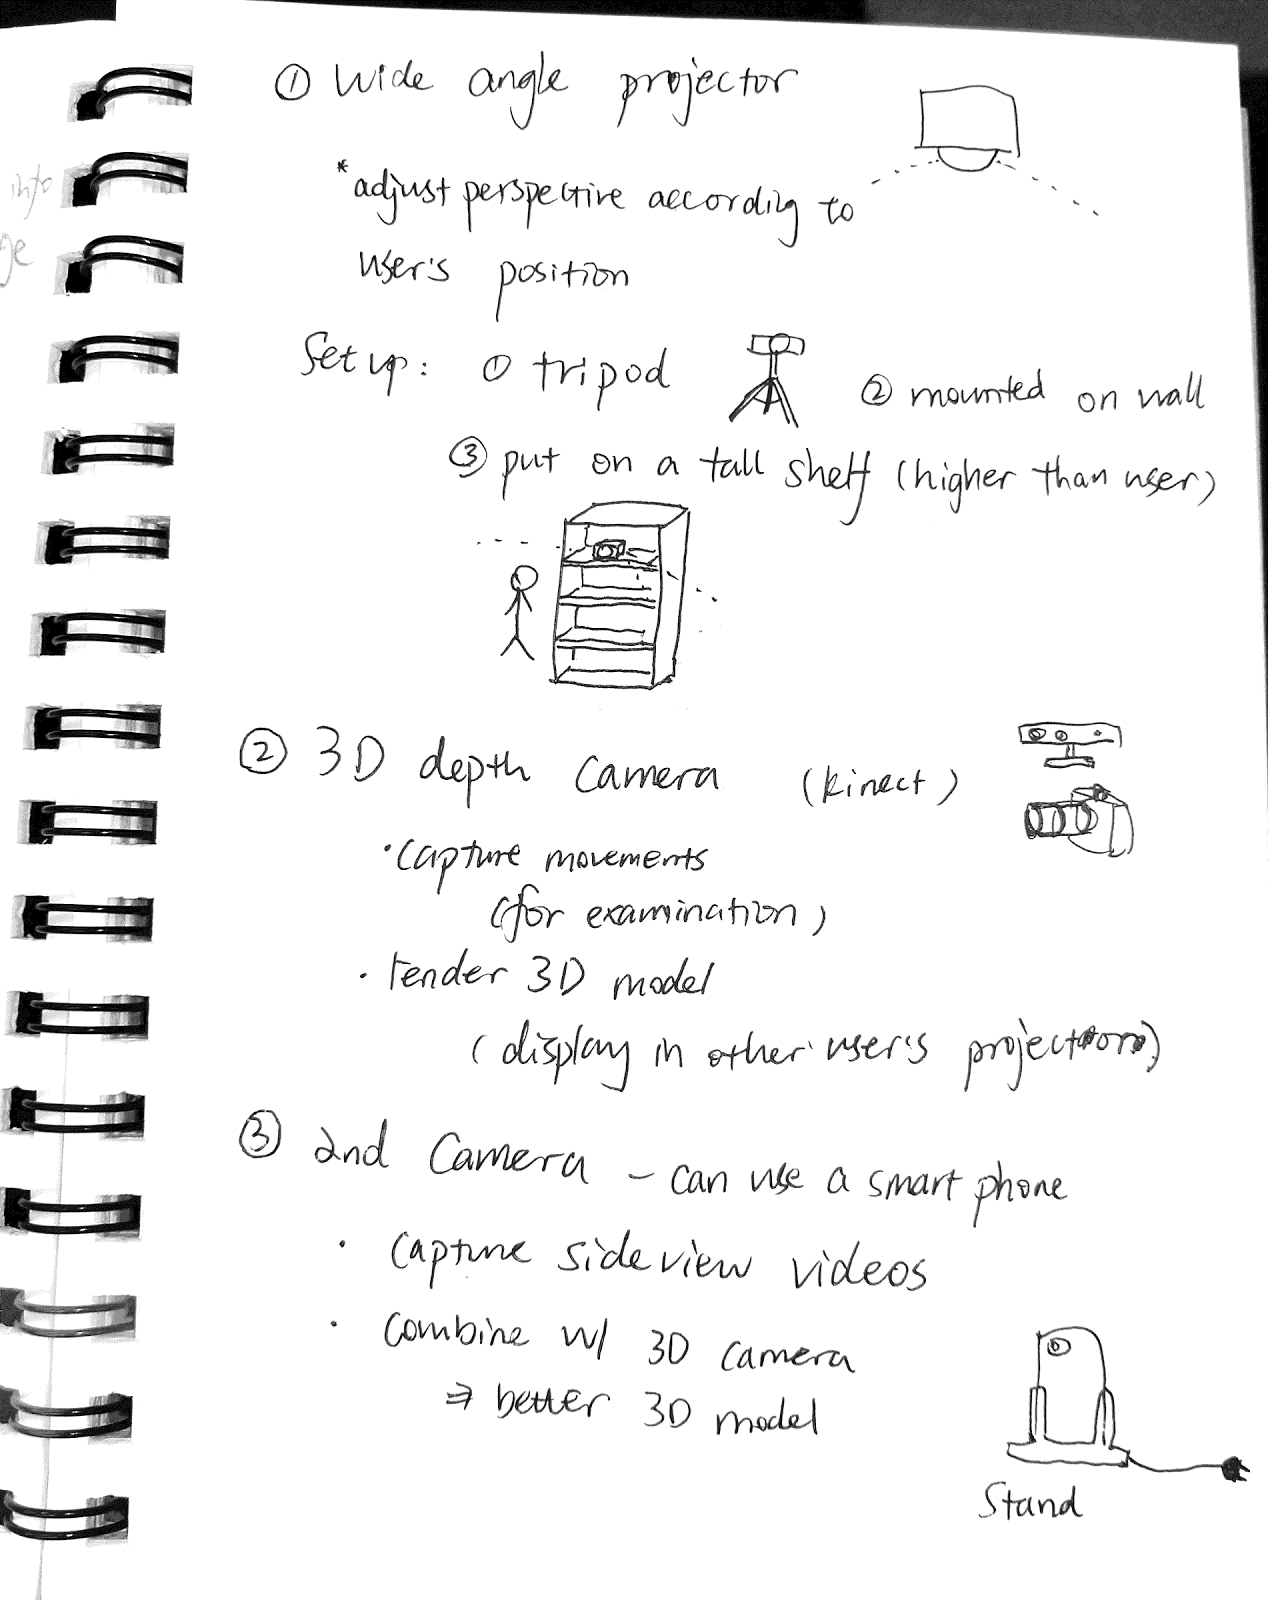 ① wide angle projector
*adjust perspective according to
user's position
info
ge
Set up: ① tripod
② mounted on wall
③ put on a tall shelf (higher than user)
② 3D depth camera (kinect)
· capture movements
(for examination)
· render 3D model
(display in other user's projector)
③ 2nd Camera – can use a smart phone
· capture sideview videos
· combine w/ 3D camera
⇒ better 3D model
Stand